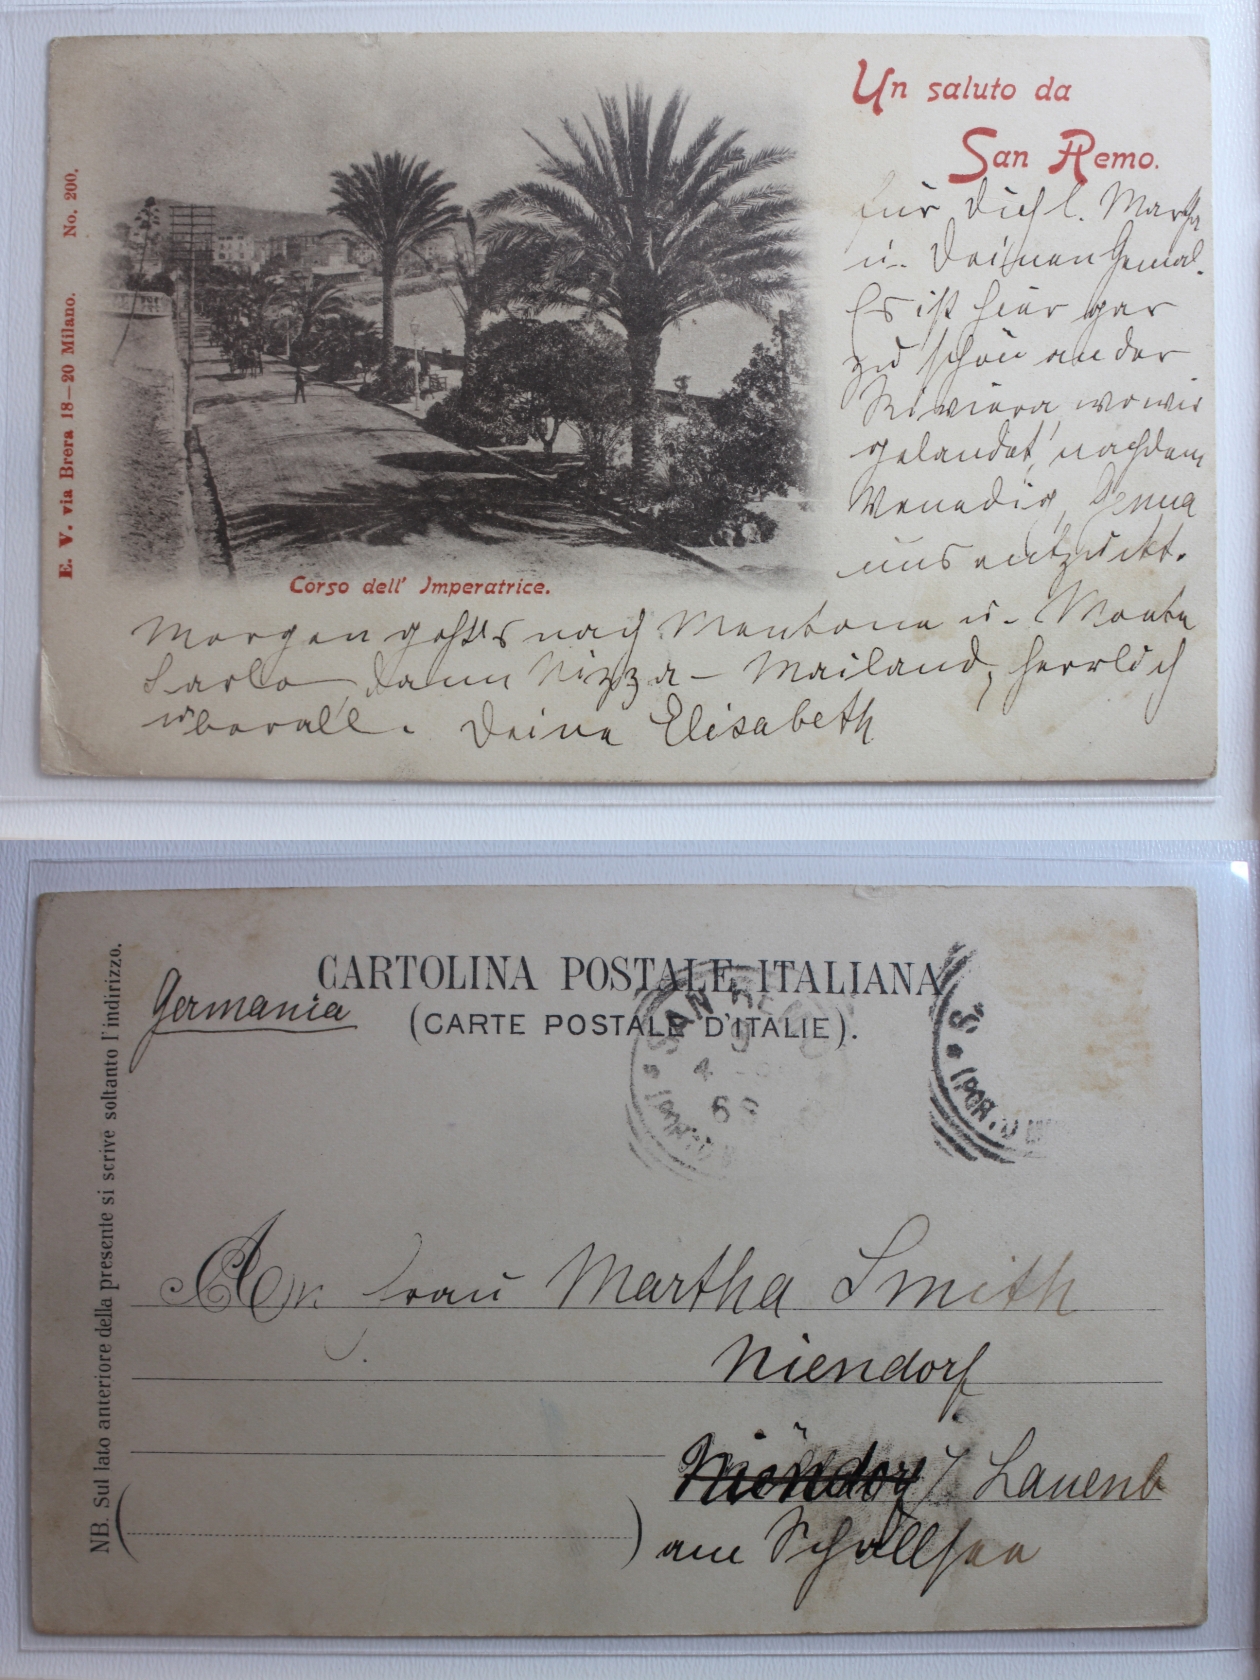 Un saluto da
San Remo.
für Dich l. Martha
u. Deinen Gemal.
Es ist hier gar
zu schön an der
Riviera, wo wir
gelandet, nachdem
Venedig, Genua
uns entzückt.
Morgen geht's nach Mentone u. Monte
Carlo, dann Nizza - Mailand, herrlich
überall. Deine Elisabeth
Corso dell' Imperatrice.
E. V. via Brera 18-20 Milano. No. 200.
CARTOLINA POSTALE ITALIANA
(CARTE POSTALE D'ITALIE).
Germania
SAN REMO
S.
(PORTO
NB. Sul lato anteriore della presente si scrive soltanto l'indirizzo.
An Frau Martha Smith
Niendorf
Niendorf / Lauenb
am Schallsee